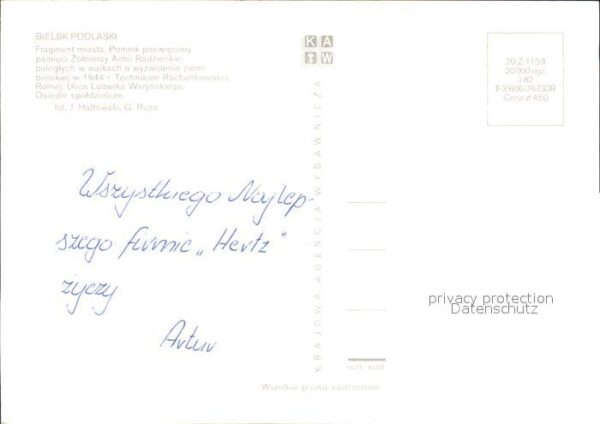 BIELSK PODLASKI
Fragment miasta. Pomnik poświęcony
pamięci Żołnierzy Armii Radzieckiej
poległych w walkach o wyzwolenie ziemi
bielskiej w 1944 r. Technikum Rachunkowości
Rolnej. Ulica Ludwika Waryńskiego.
Osiedle spółdzielcze.
fot. J. Hattowski, G. Russ
K A
T W
20 Z-110/II
20 000 egz.
J-82
II-3/606/76 DDR
Cena zł 4,50
KRAJOWA AGENCJA WYDAWNICZA
Wszystkiego Najlep-
szego firmie „Hertz"
życzy
Artur
privacy protection
Datenschutz
kod
Wszelkie prawa zastrzeżone